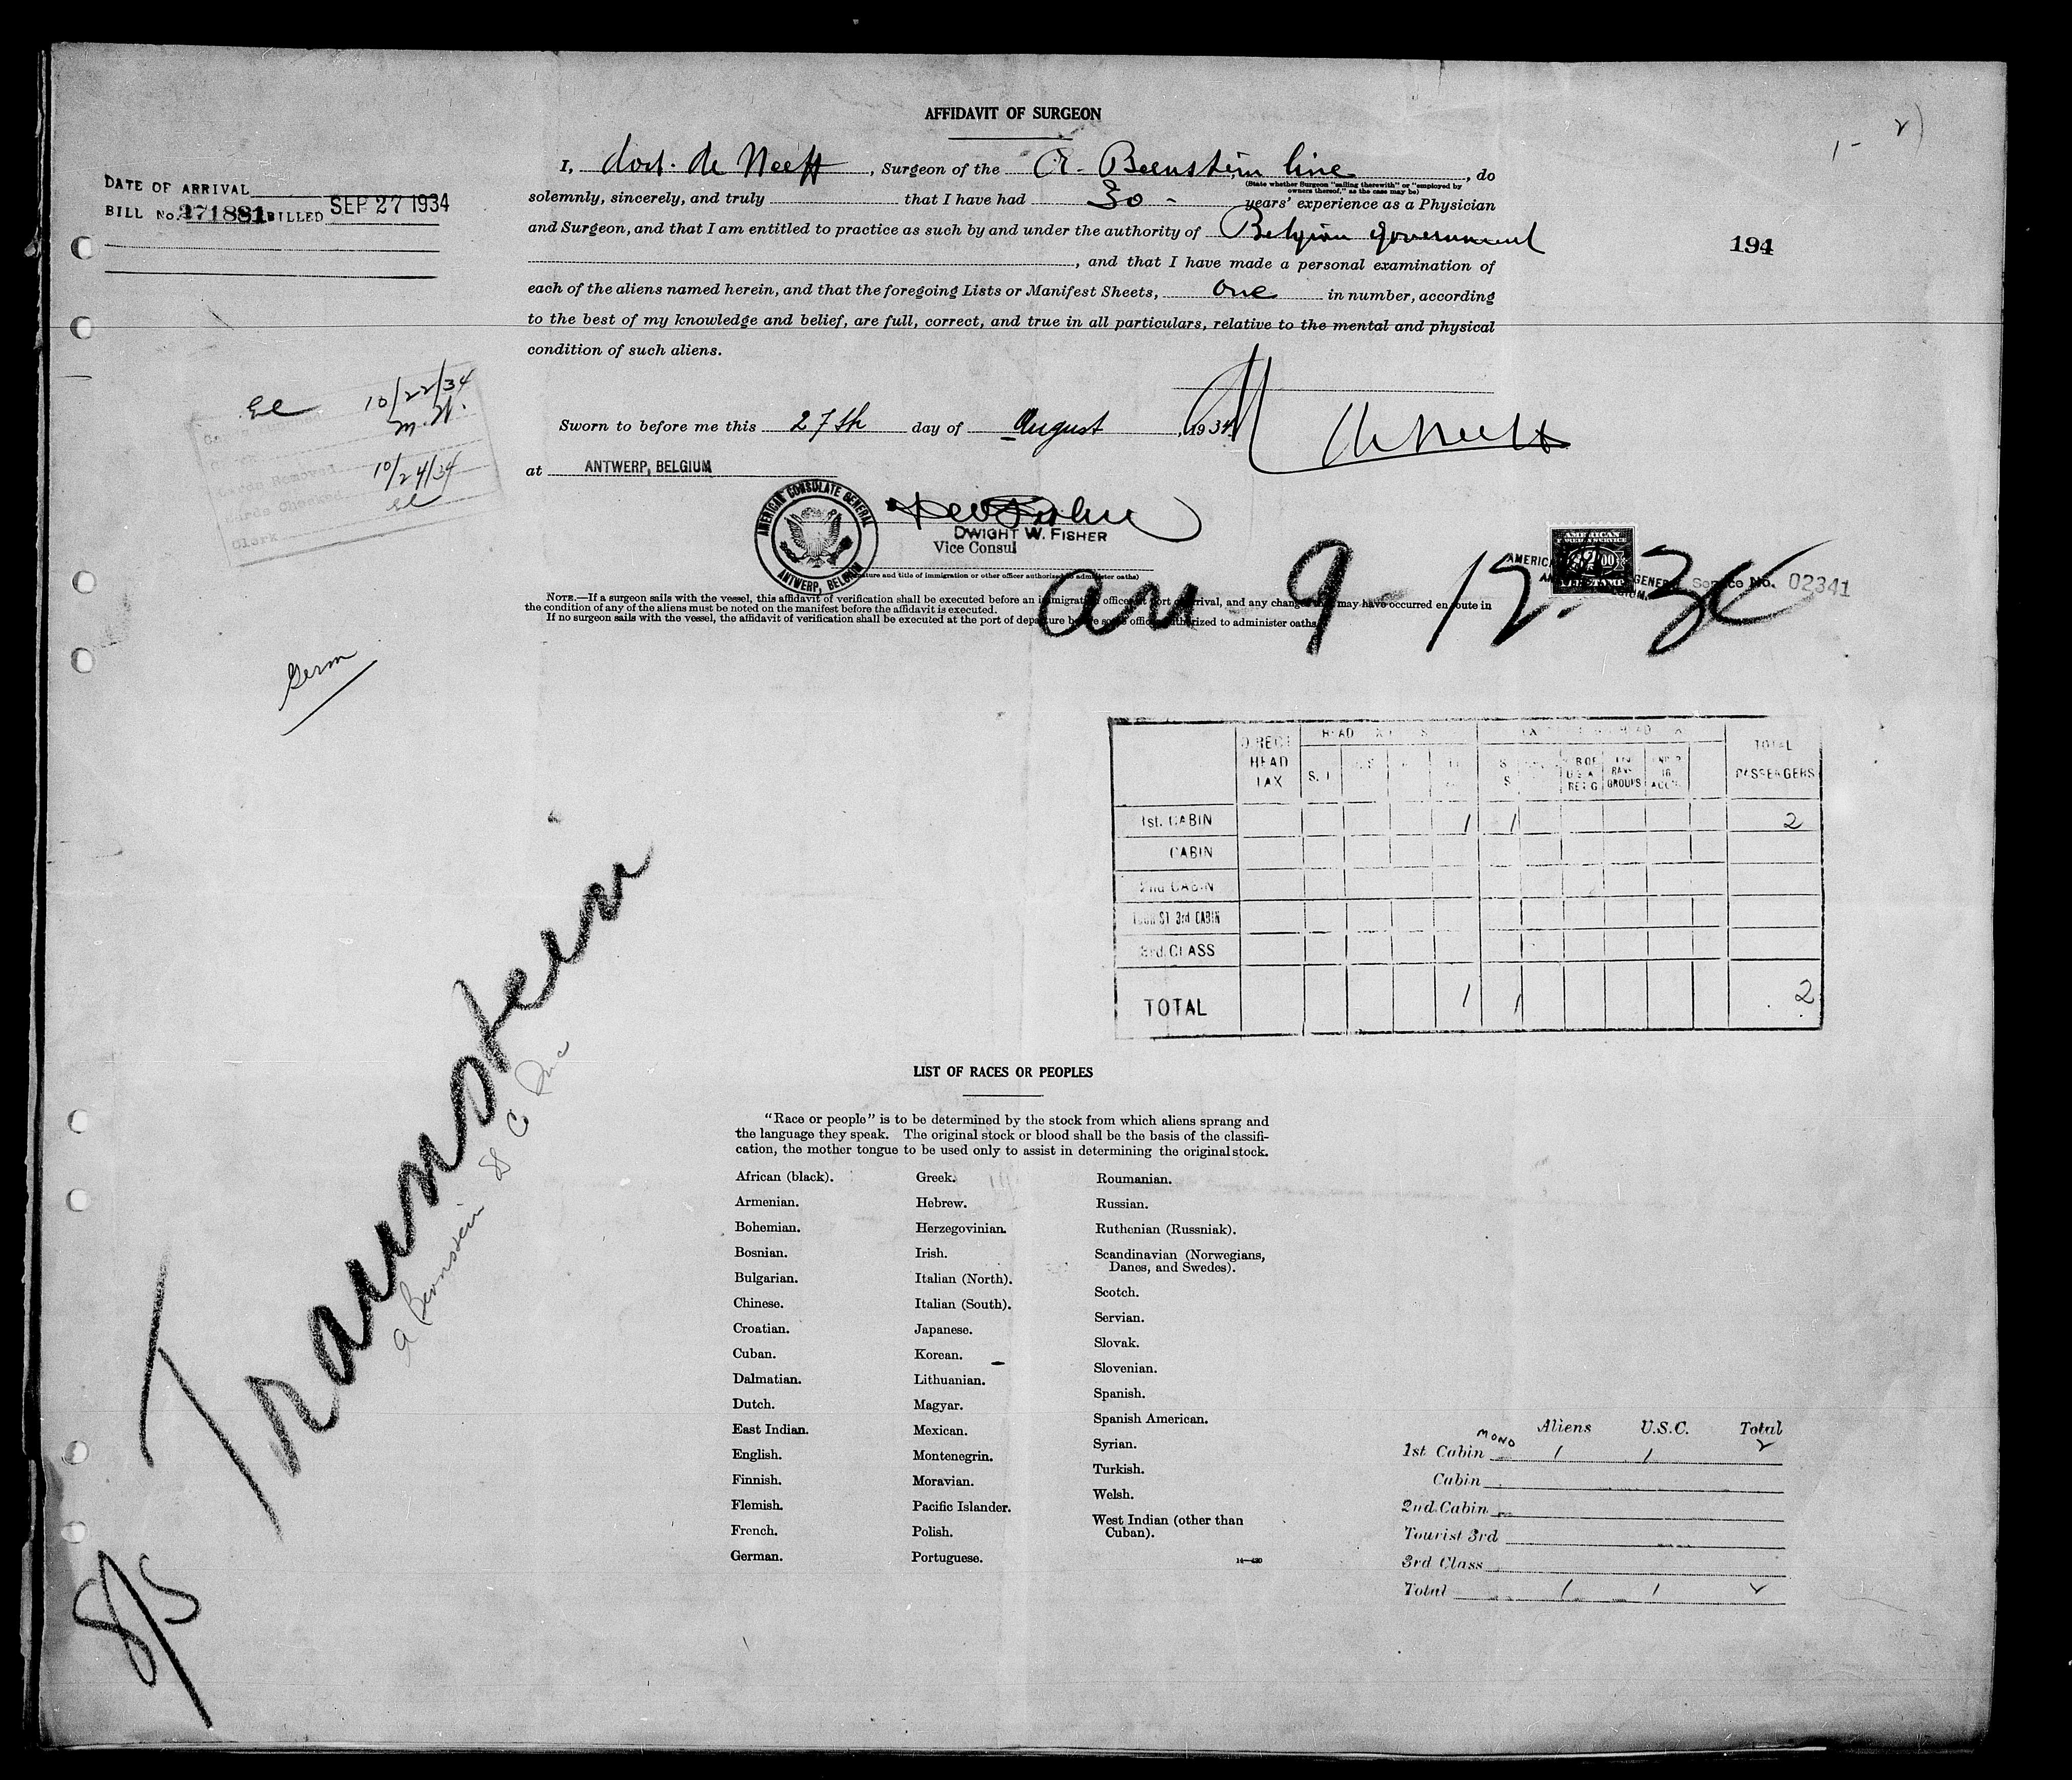 AFFIDAVIT OF SURGEON
I, doct. de Neeff, Surgeon of the A. Bernstein line, do
(State whether Surgeon "sailing therewith" or "employed by
owners thereof," as the case may be)
solemnly, sincerely, and truly that I have had 30 - years' experience as a Physician
and Surgeon, and that I am entitled to practice as such by and under the authority of Belgian government
, and that I have made a personal examination of
each of the aliens named herein, and that the foregoing Lists or Manifest Sheets, one in number, according
to the best of my knowledge and belief, are full, correct, and true in all particulars, relative to the mental and physical
condition of such aliens.
DATE OF ARRIVAL
BILL No. 271881 BILLED SEP 27 1934
194
10/22/34
10/24/34
Clerk
Sworn to before me this 27th day of August, 1934
de Neeff
at ANTWERP, BELGIUM
AMERICAN CONSULATE GENERAL
ANTWERP, BELGIUM
DWIGHT W. FISHER
Vice Consul
(Signature and title of immigration or other officer authorized to administer oaths)
Service No. 02341
NOTE.—If a surgeon sails with the vessel, this affidavit of verification shall be executed before an immigration officer at port of arrival, and any changes that may have occurred en route in
the condition of any of the aliens must be noted on the manifest before the affidavit is executed.
If no surgeon sails with the vessel, the affidavit of verification shall be executed at the port of departure before some officer authorized to administer oaths.
Germ
DIRECT HEAD TAX
TOTAL PASSENGERS
1st. CABIN 1 1 2
CABIN
2nd CABIN
TOURIST 3rd CABIN
3rd. CLASS
TOTAL 1 1 2
S/S Traunstein
A Bernstein S S Co Inc
LIST OF RACES OR PEOPLES
"Race or people" is to be determined by the stock from which aliens sprang and
the language they speak. The original stock or blood shall be the basis of the classifi-
cation, the mother tongue to be used only to assist in determining the original stock.
African (black).
Armenian.
Bohemian.
Bosnian.
Bulgarian.
Chinese.
Croatian.
Cuban.
Dalmatian.
Dutch.
East Indian.
English.
Finnish.
Flemish.
French.
German.
Greek.
Hebrew.
Herzegovinian.
Irish.
Italian (North).
Italian (South).
Japanese.
Korean.
Lithuanian.
Magyar.
Mexican.
Montenegrin.
Moravian.
Pacific Islander.
Polish.
Portuguese.
Roumanian.
Russian.
Ruthenian (Russniak).
Scandinavian (Norwegians,
Danes, and Swedes).
Scotch.
Servian.
Slovak.
Slovenian.
Spanish.
Spanish American.
Syrian.
Turkish.
Welsh.
West Indian (other than
Cuban).
14—420
Aliens U.S.C. Total
1st Cabin MONO 1 1 2
Cabin
2nd Cabin
Tourist 3rd
3rd Class
Total 1 1 2